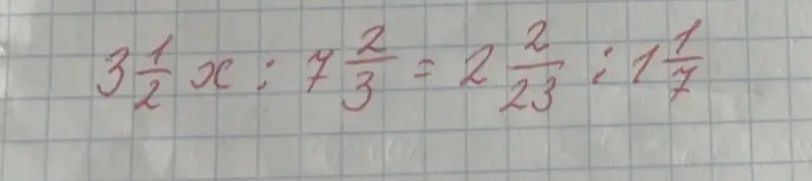 3 1/2 x : 7 2/3 = 2 2/23 : 1 1/7